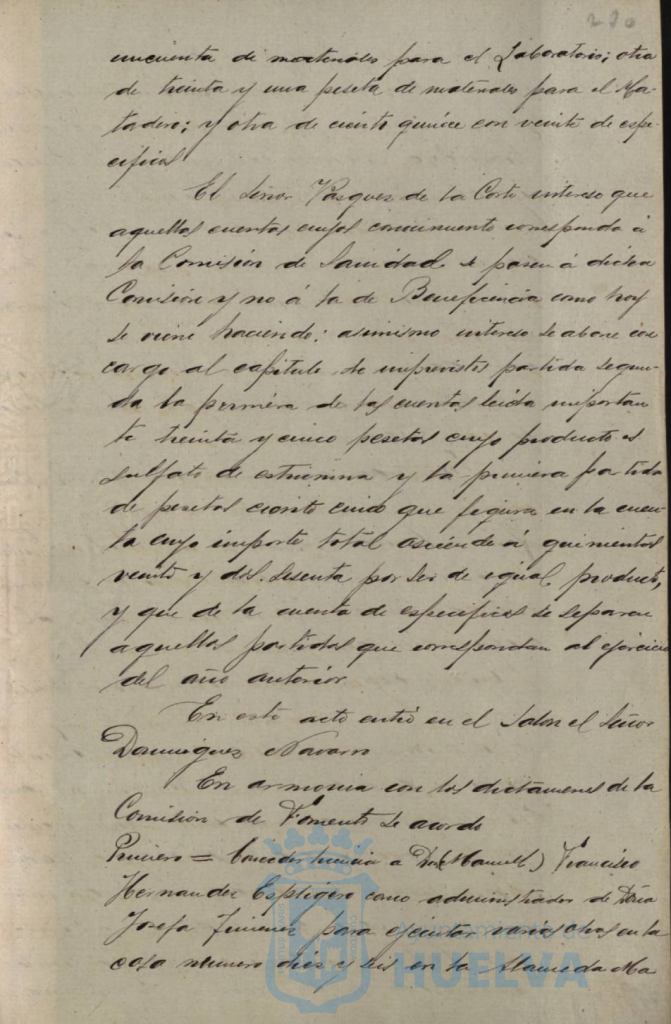 230
cincuenta de materiales para el Laboratorio; otra
de treinta y una peseta de materiales para el Ma-
tadero; y otra de ciento quince con veinte de espe-
cificos
El Señor Vazquez de la Corte intereso que
aquellas cuentas cuyos conocimiento corresponda á
la Comisión de Sanidad se pasen á dicha
Comisión y no á la de Beneficencia como hoy
se viene haciendo: asimismo intereso se abone con
cargo al capitulo de imprevistos partida segun-
da la primera de las cuentas leida importan
te treinta y cinco pesetas cuyo producto es
sulfato de estricnina y la primera partida
de pesetas ciento cinco que figura en la cuen-
ta cuyo importe total asciende á quinientos
veinte y dos sesenta por ser de igual producto,
y que de la cuenta de especificos se separen
aquellas partidas que correspondan al ejercicio
del año anterior
En este acto entró en el Salon el Señor
Dominguez Navarro
En armonia con los dictamenes de la
Comisión de Fomento se acordo
Primero = Conceder licencia a Don (Manuel) Francisco
Hernandez Espligero como administrador de Doña
Josefa Jimenez para ejecutar varias obras en la
casa numero diez y seis en la Alameda Ma
Ayuntamiento de
HUELVA